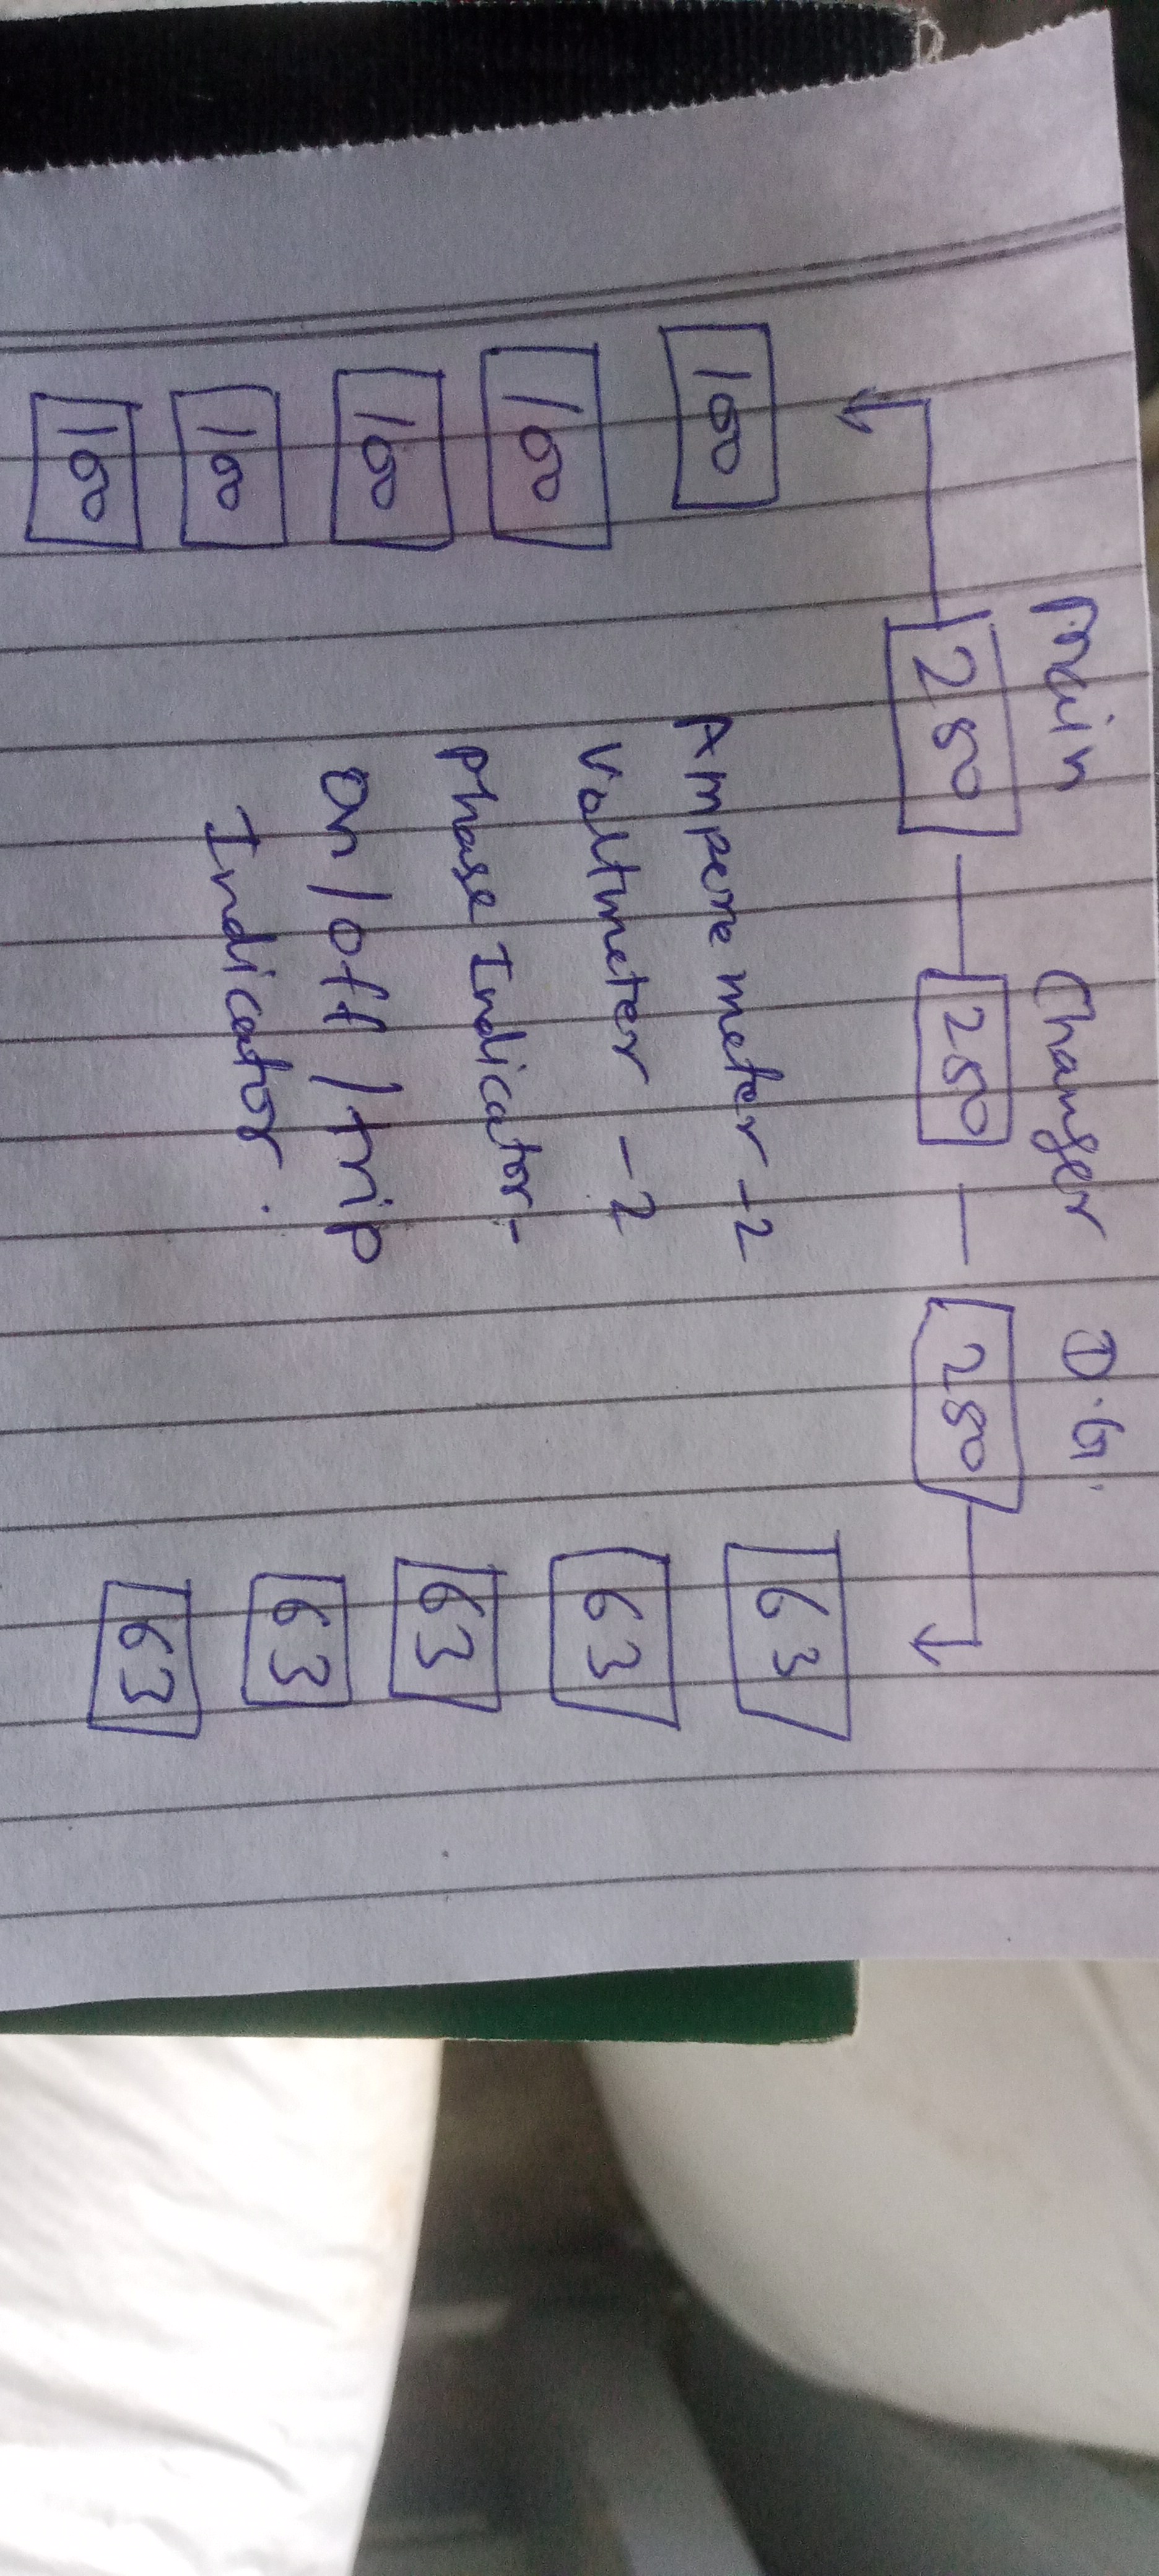 Main Changer D.G.
250 250 250
100 63
100 63
100 63
100 63
100 63
Ampere meter -2
Voltmeter -2
Phase Indicator-
On/off/trip
Indicator.